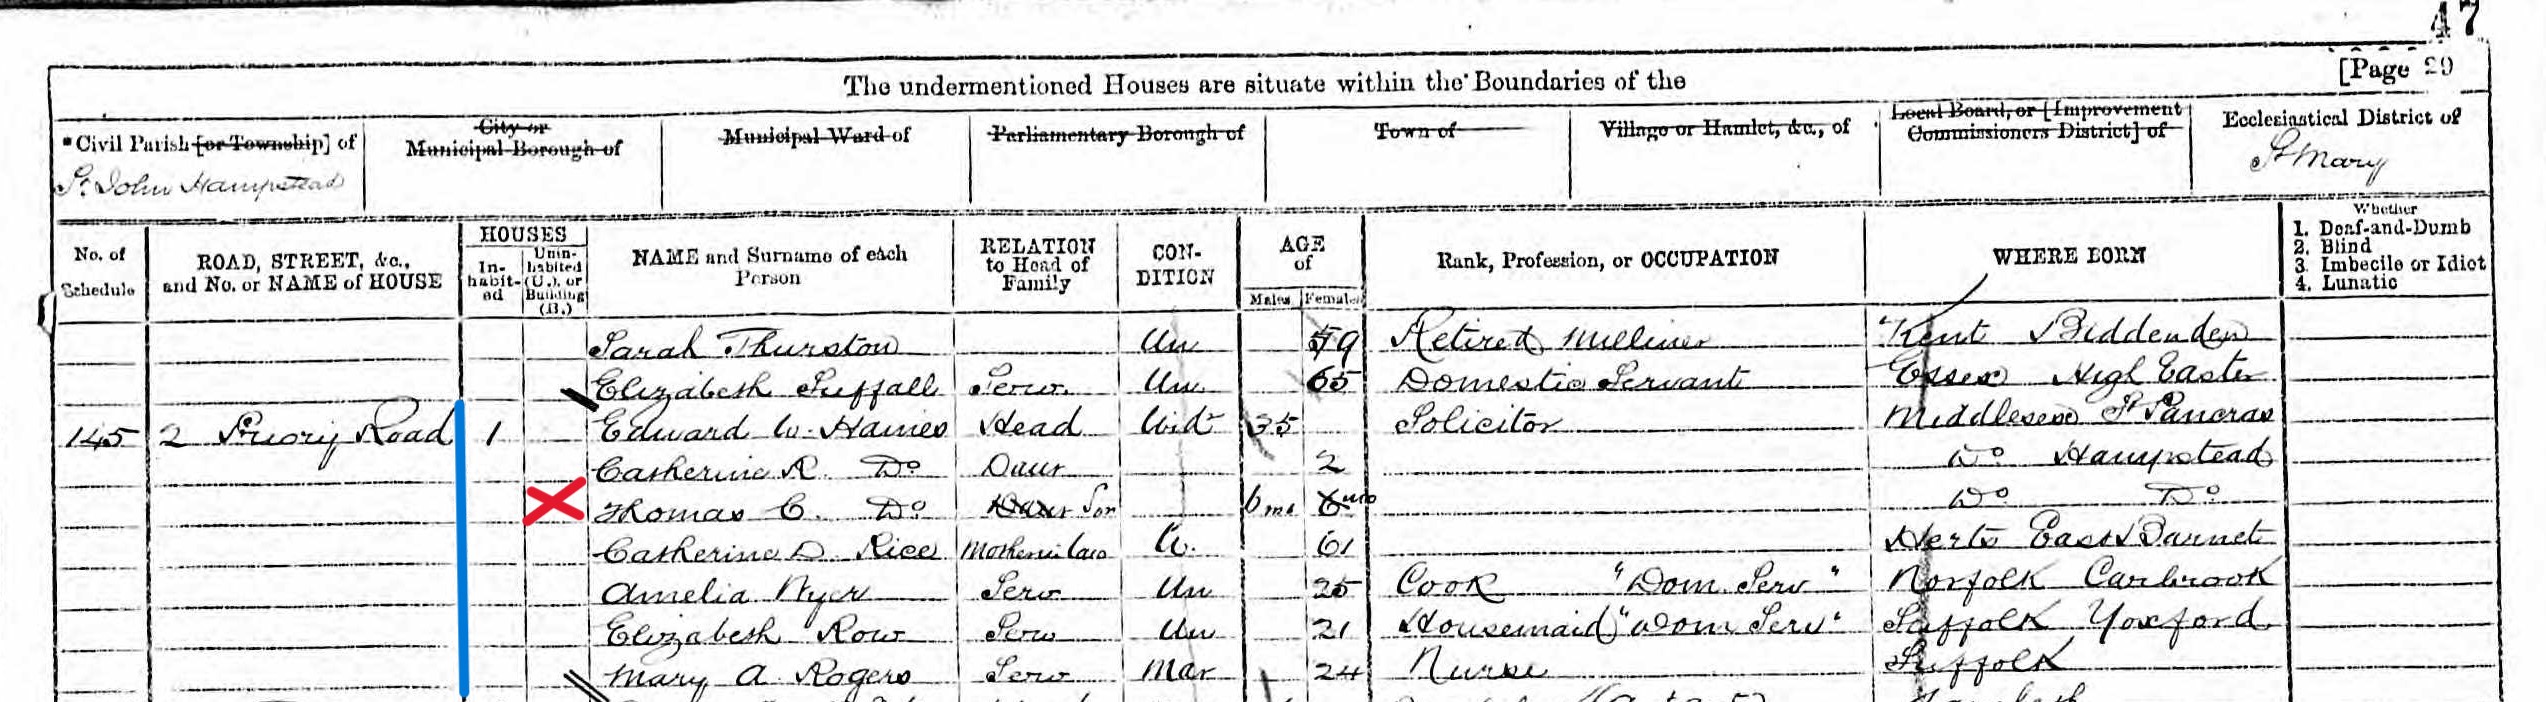 47
[Page 29
The undermentioned Houses are situate within the Boundaries of the
*Civil Parish [or Township] of City or Municipal Borough of Municipal Ward of Parliamentary Borough of Town of Village or Hamlet, &c., of Local Board, or [Improvement Commissioners District] of Ecclesiastical District of
St. John Hampstead St Mary
No. of Schedule ROAD, STREET, &c., and No. or NAME of HOUSE HOUSES In-habit-ed Unin-habited (U.), or Building (B.) NAME and Surname of each Person RELATION to Head of Family CON-DITION AGE of Males Females Rank, Profession, or OCCUPATION WHERE BORN Whether 1. Deaf-and-Dumb 2. Blind 3. Imbecile or Idiot 4. Lunatic
Sarah Thurston Un 59 Retired Milliner Kent Biddenden
Elizabeth Suffall Serv. Un 65 Domestic Servant Essex High Easter
145 2 Priory Road 1 Edward W. Haines Head Wid 35 Solicitor Middlesex St Pancras
Catherine R. Do Daur 2 Do Hampstead
Thomas C. Do Daur Son 6ms 6mo Do Do
Catherine D. Rice Mother in law W. 61 Herts East Barnet
Amelia Nyer Serv Un 25 Cook "Dom. Serv" Norfolk Carbrook
Elizabeth Row Serv Un 21 Housemaid "Dom Serv" Suffolk Yoxford
Mary A Rogers Serv Mar 24 Nurse Suffolk